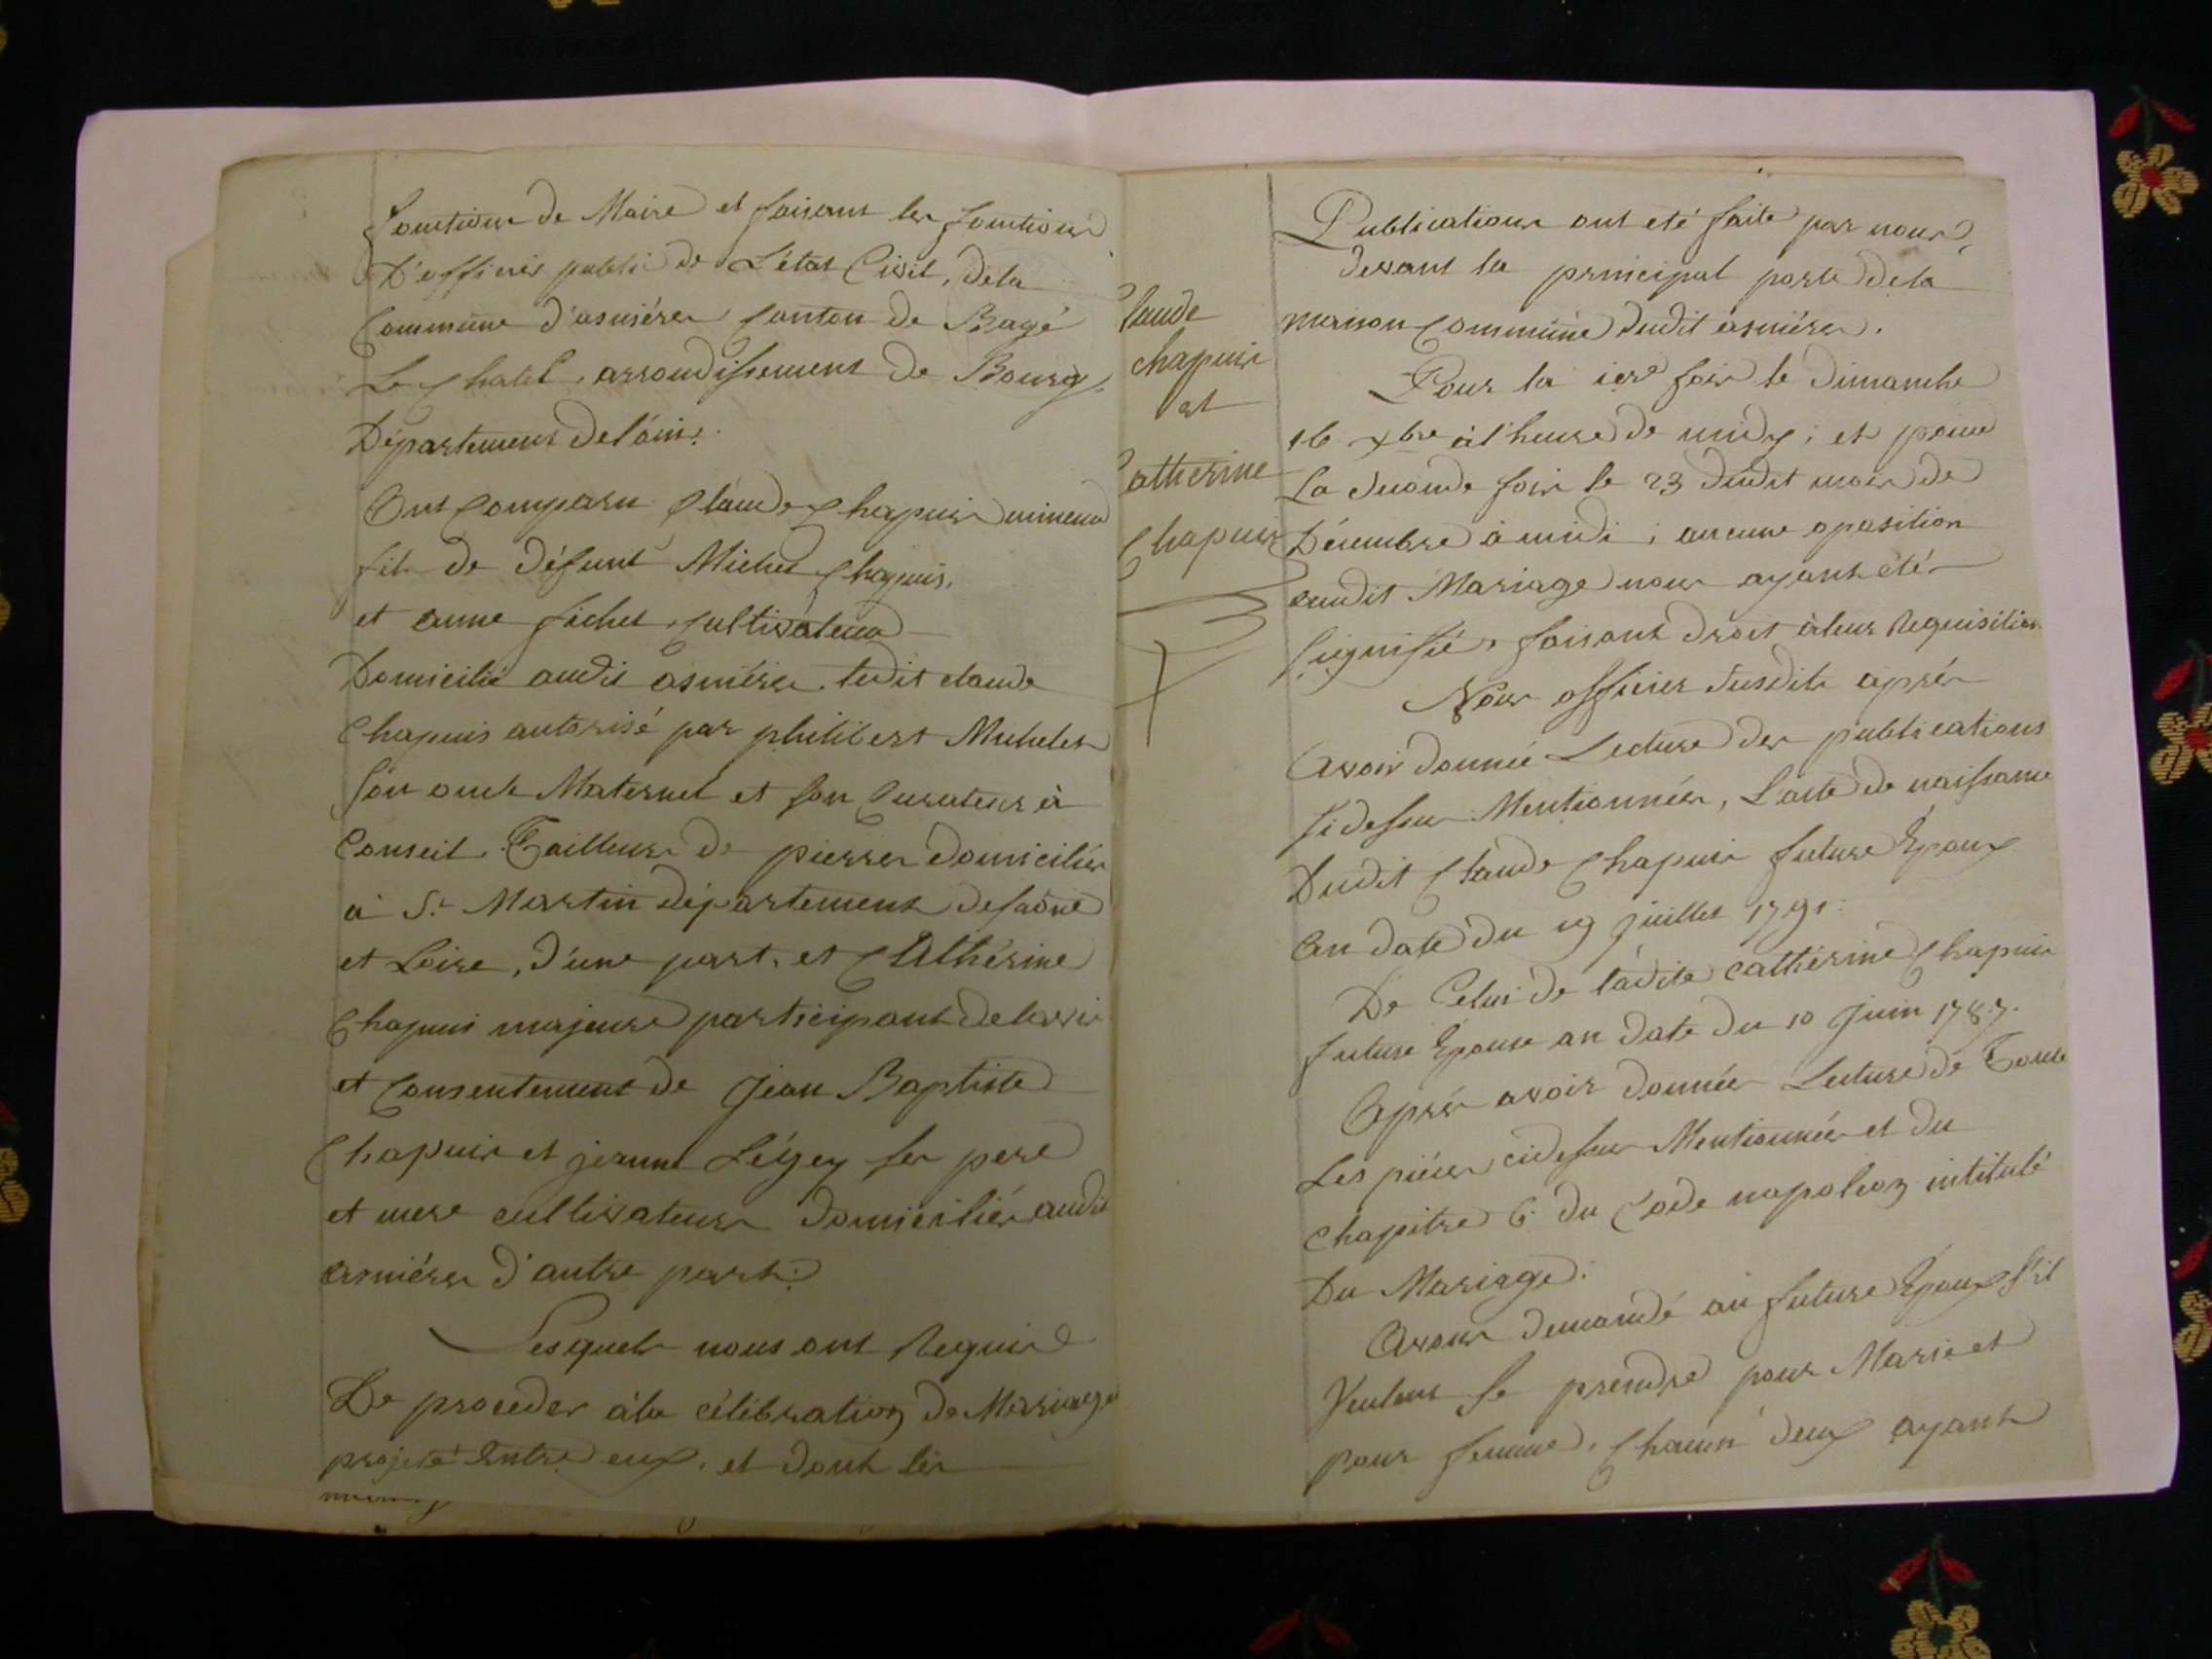 fonctions de Maire et faisant les fonctions
D'officier public de L'état Civil, dela
Commune d'asniéres Canton de Bagé
Le Chatel, arrondissement de Bourg,
Département de l'ain.
Ont Comparu Claude Chapuis mineur
fils de défunt Michel Chapuis,
et anne fichet, cultivateur
Domicilié audit asniéres. ledit claude
Chapuis autorisé par philibert Michelet
son oncle Maternel et son Curateur à
Conseil. Tailleur de pierres domiciliés
à St. Martin département de saône
et Loire, d'une part, et Cathérine
Chapuis majeure participant de lavis
et Consentement de Jean Baptiste
Chapuis et jeanne Légey ses pere
et mere cultivateurs domiciliés audit
asniéres d'autre part.
Lesquels nous ont Requis
De proceder àla célébration de Mariage
projeté Entre eux. et dont les
laude
chapuis
et
atherine
Chapuis
Publications ont eté faite par nous,
devant la principal porte dela
maison Commune dudit asniéres.
Pour la iere fois le Dimanche
16 xbre à l'heure de midy; et pour
La seconde fois le 23 dudit mois de
Décembre à midi; aucune oposition
audit Mariage nous ayant été
signifié, faisant droit àleur Requisition
Nous officier susdit après
avoir donnée Lecture des publications
sidessus Mentionnées, L'acte de naissance
Dudit Claude Chapuis future Epoux
an date du 19 juillet 1791.
De Celui de ladite catherine Chapuis
future Epouse an date du 10 Juin 1787.
après avoir donnée Lecture de Toute
Les piéces cidessus Mentionnées et du
chapitre 6. du Code napoleon intitulé
Du Mariage.
avons demandé au future Epoux s'il
Veulent se prendre pour Marie et
pour femme. Chacun deux ayant